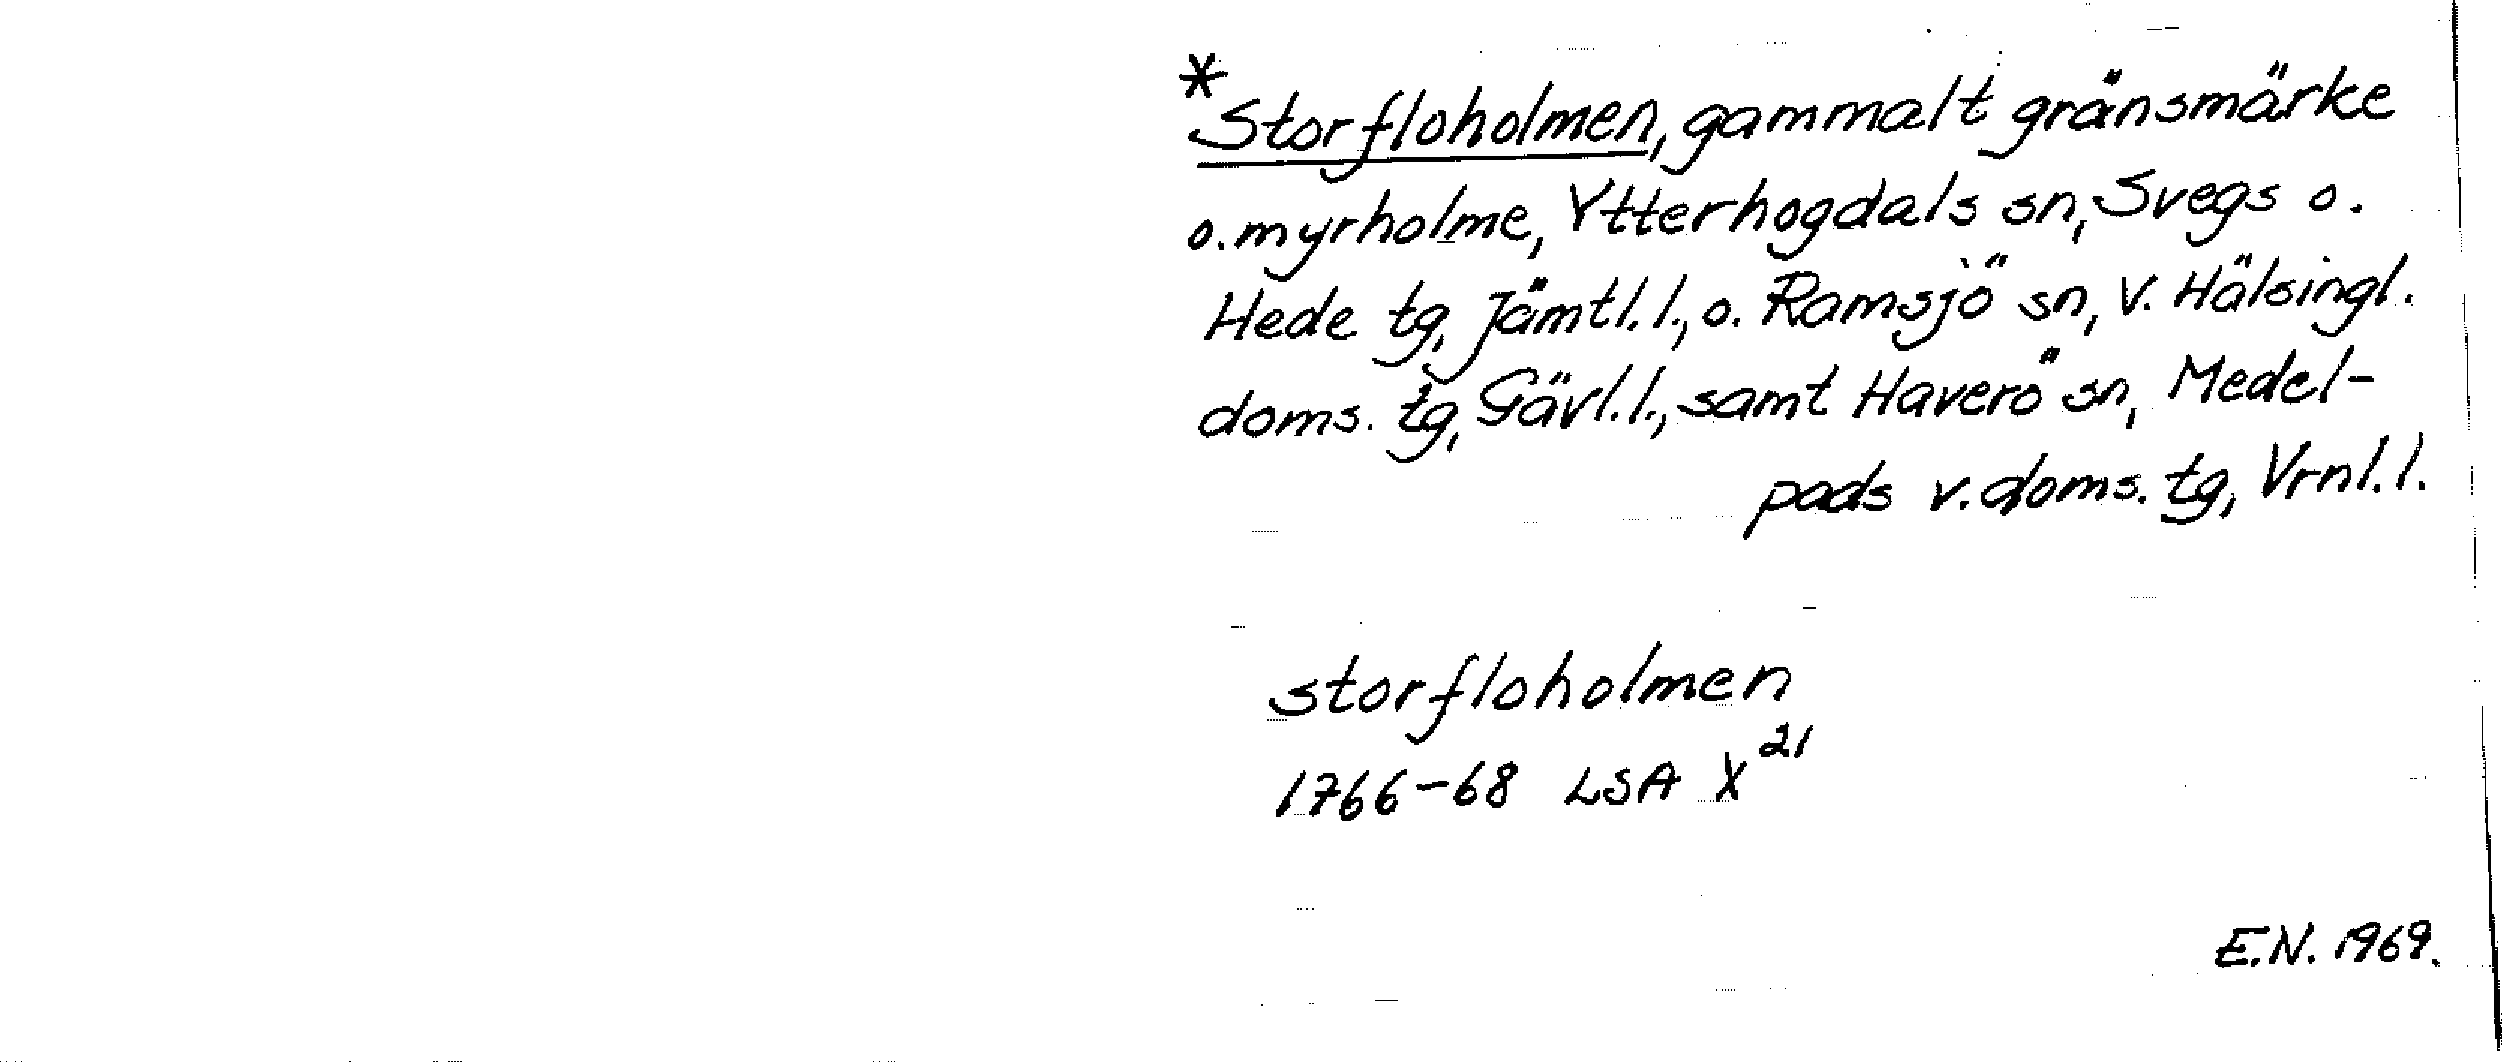 *Storfloholmen, gammalt gränsmärke
o. myrholme, Ytterhogdals sn, Svegs o.
Hede tg, Jämtl. l., o. Ramsjö sn, V. Hälsingl.
doms. tg, Gävl. l., samt Haverö sn, Medel-
pads v. doms. tg, Vrnl. l.
storfloholmen
1766-68 LSA X²¹
E.N. 1969.